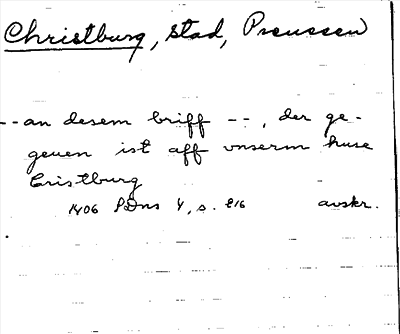 Christburg, stad, Preussen
-- an desem briff --, der ge-
geuen ist aff vnserm huse
Cristburg
1406 SDns 4, s. 216 avskr.